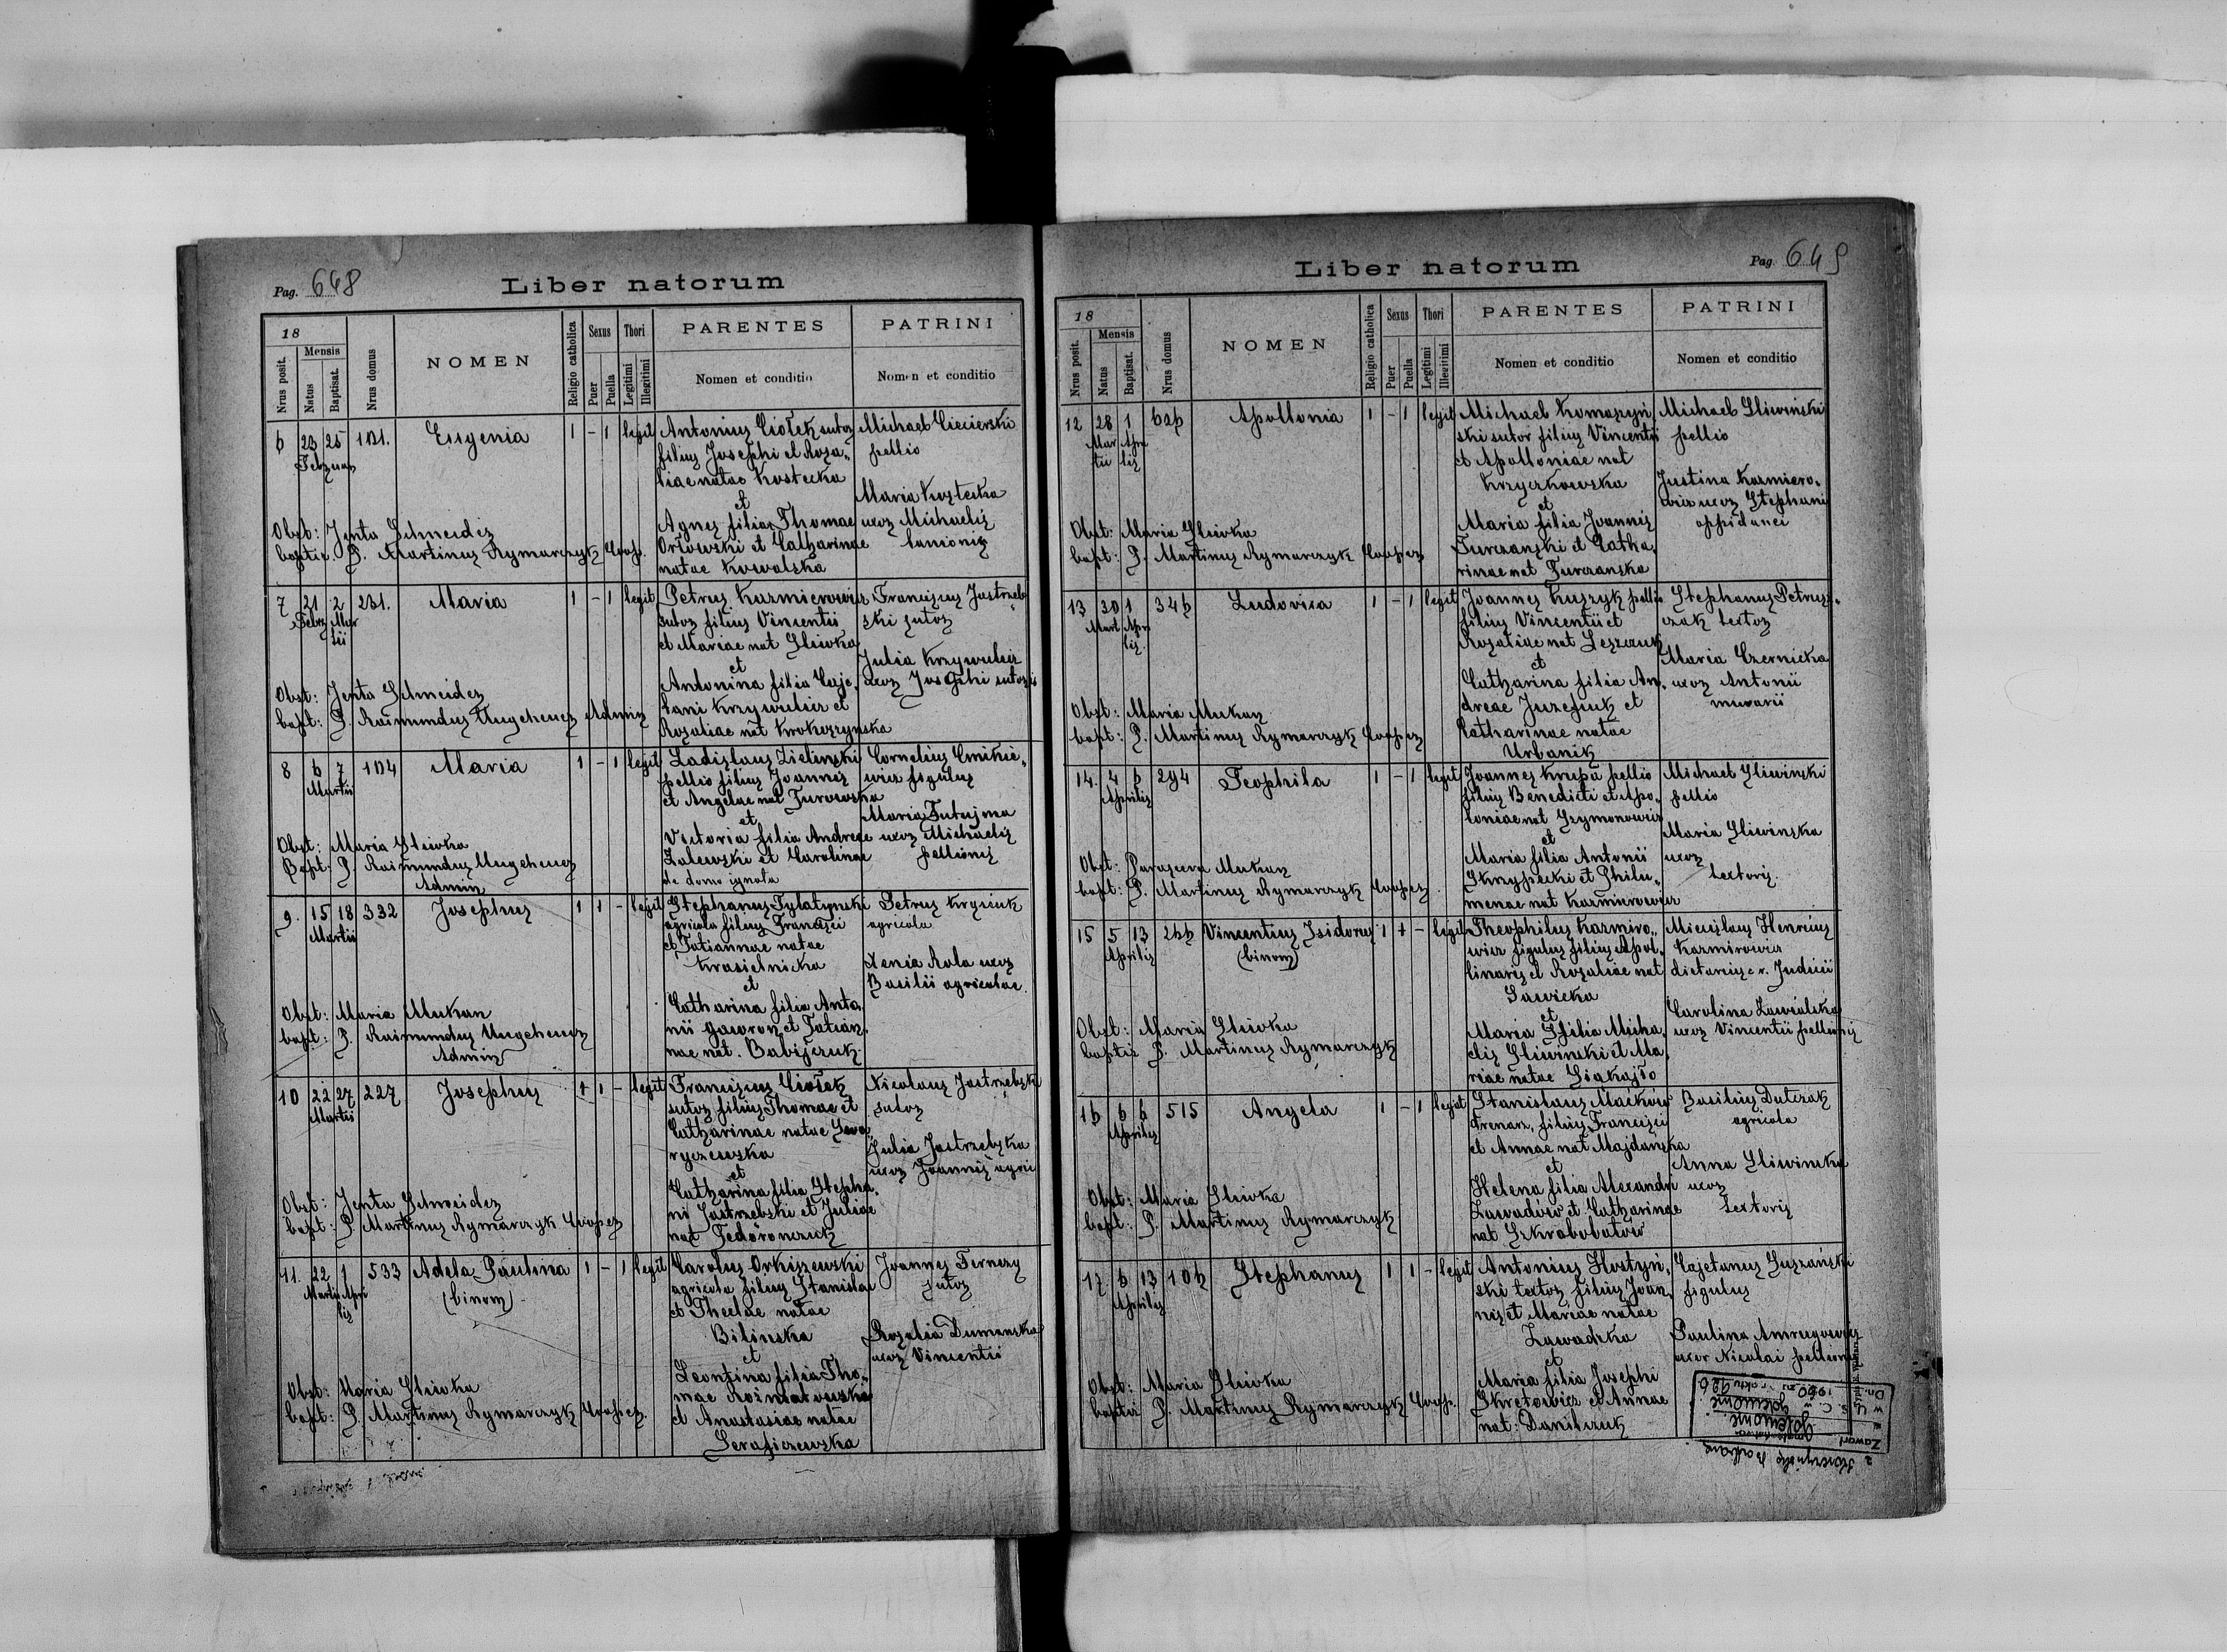 Pag. 648
Liber natorum
18
Nrus posit.
Mensis
Natus
Baptisat.
Nrus domus
NOMEN
Religio catholica
Sexus
Puer
Puella
Thori
Legitimi
Illegitimi
PARENTES
Nomen et conditio
PATRINI
Nomen et conditio
6 23 25 121. Eugenia 1 - 1 legit
Antonius Ciołek sutor
filius Josephi et Rosa„
liae natae Kostecka
et
Agnes filia Thomae
Orłowski et Catharinae
natae Kowalska
Michael Ciecierski
pellio
Maria Kostecka
uxor Michaelis
lanionis
Obst: Jenta Schneider
baptis. P. Martinus Rymarczyk Coop.
7 21 2 231. Maria 1 - 1 legit
Febr Mar
tii
Petrus Kazmierowicz
sutor filius Vincentii
et Mariae nat Sliwka
et
Antonina filia Caje„
tani Krzywulicz et
Rosaliae nat Krokoszynska
Franciscus Jastrzeb
ski sutor
Julia Krzywulicz
uxor Josephi sutoris
Obst: Jenta Schneider
bapt: P. Raimundus Ungeheuer Admin
8 6 7 104 Maria 1 - 1 legit
Martii
Ladislaus Zielinski
pellio filius Joannes
et Angelae nat Turowska
et
Victoria filia Andreae
Zalewski et Carolinae
de domo ignota
Cornelius Cmikie„
wicz figulus
Maria Tutujma
uxor Michaelis
pellionis
Obst: Maria Sliwka
Bapt: P. Raimundus Ungeheuer
Admin
9. 15 18 332 Josephus 1 1 - legit
Martii
Stephanus Tylatynski
agricola filius Francisci
et Tatiannae natae
Krasielnicka
et
Catharina filia Anto„
nii Gawron et Tatian„
nae nat. Babijczuk
Petrus Krysiuk
agricola
Xenia Rola uxor
Basilii agricolae
Obst: Maria Mukan
bapt: P. Raimundus Ungeheuer
Admin
10 22 27 227 Josephus 1 1 - legit
Martii
Franciscus Ciołek
sutor filius Thomae et
Catharinae natae
et
Catharina filia Stepha„
ni Jastrzebski et Juliae
nat Fedoronczuk
Nicolaus Jastrzebski
sutor
Julia Jastrzebska
uxor Joannis agri
Obst: Jenta Schneider
bapt: P. Martinus Rymarczyk Cooper
11. 22 1 533 Adela Paulina 1 - 1 legit
Martii Apri
lis
(binom)
Carolus Orkiszewski
agricola filius Stanislai
et Theclae natae
Bilinska
et
Leontina filia Tho„
mae
et Anastasiae natae
Seraficzewska
Joannes Ternezy
sutor
Rosalia Dumanska
uxor Vincentii
Obst: Maria Sliwka
bapt: P. Martinus Rymarczyk Cooper.
Pag. 649
Liber natorum
18
Nrus posit.
Mensis
Natus
Baptisat.
Nrus domus
NOMEN
Religio catholica
Sexus
Puer
Puella
Thori
Legitimi
Illegitimi
PARENTES
Nomen et conditio
PATRINI
Nomen et conditio
12 28 1 626 Apollonia 1 - 1 legit
Mar Apri
tii lis
Michael Komazyń„
ski sutor filius Vincentii
et Apolloniae nat
Krzyczkowska
et
Maria filia Joannis
Turczanski et Catha„
rinae nat Turczanska
Michael Sliwiński
pellio
Justina Kazmiero„
wicz uxor Stephani
oppidanei
Obst: Maria Sliwka
bapt: P. Martinus Rymarczyk Cooper
13 30 1 346 Ludovica 1 - 1 legit
Mart Apri
lis
Joannes Kuszyk pellio
filius Vincentii et
Rosaliae nat Leszczuk
et
Catharina filia An„
dreae Juzefiuk et
Catharinae natae
Urbanik
Stephanus Petrusz„
czak textor
Maria Czernicka
uxor Antonii
murarii
Obst: Maria Mukan
bapt: P. Martinus Rymarczyk Cooper
14. 4 6 294 Teophila 1 - 1 legit
Aprilis
Joannes Krupa pellio
filius Benedicti et Apo„
loniae nat Szymonowicz
et
Maria filia Antonii
Skrypecki et Philu„
menae nat Kazmierowicz
Michael Sliwinski
pellio
Maria Sliwinska
uxor
textoris.
Obst: Parascewa Mukan
bapt: P. Martinus Rymarczyk Cooper.
15 5 13 266 Vincentius Isidorus 1 1 - legit
Aprilis
(binom)
Theophilus Kazmiro„
wicz figulus filius Apol„
linaris et Rosaliae nat
Sawicka
et
Maria filia Micha„
elis Sliwinski et Ma„
riae natae Siakajło
Miecislaus Henricus
Kazmirowicz
dietarius c. r. Judicii
Carolina Zawialska
uxor Vincentii pellionis
Obst: Maria Sliwka
baptis P. Martinus Rymarczyk
16 6 6 515 Angela 1 - 1 legit
Aprilis
Stanislaus Maćków
frenarz, filius Francisci
et Annae nat Majdanska
et
Helena filia Alexandri
Zawadow et Catharinae
nat Szkrobobatow
Basilius Dutczak
agricola
Anna Sliwinska
uxor
textoris
Obst: Maria Sliwka
bapt: P. Martinus Rymarczyk
17 6 13 106 Stephanus 1 1 - legit
Aprilis
Antonius Hostyń„
ski textor filius Joan„
nis et Mariae natae
Zawadzka
et
Maria filia Josephi
Skretowicz et Annae
nat: Danilczuk
Cajetanus Suszański
figulus
Paulina
uxor Nicolai pellionis
Obst: Maria Sliwka
baptis P. Martinus Rymarczyk Coop.
Zawarł